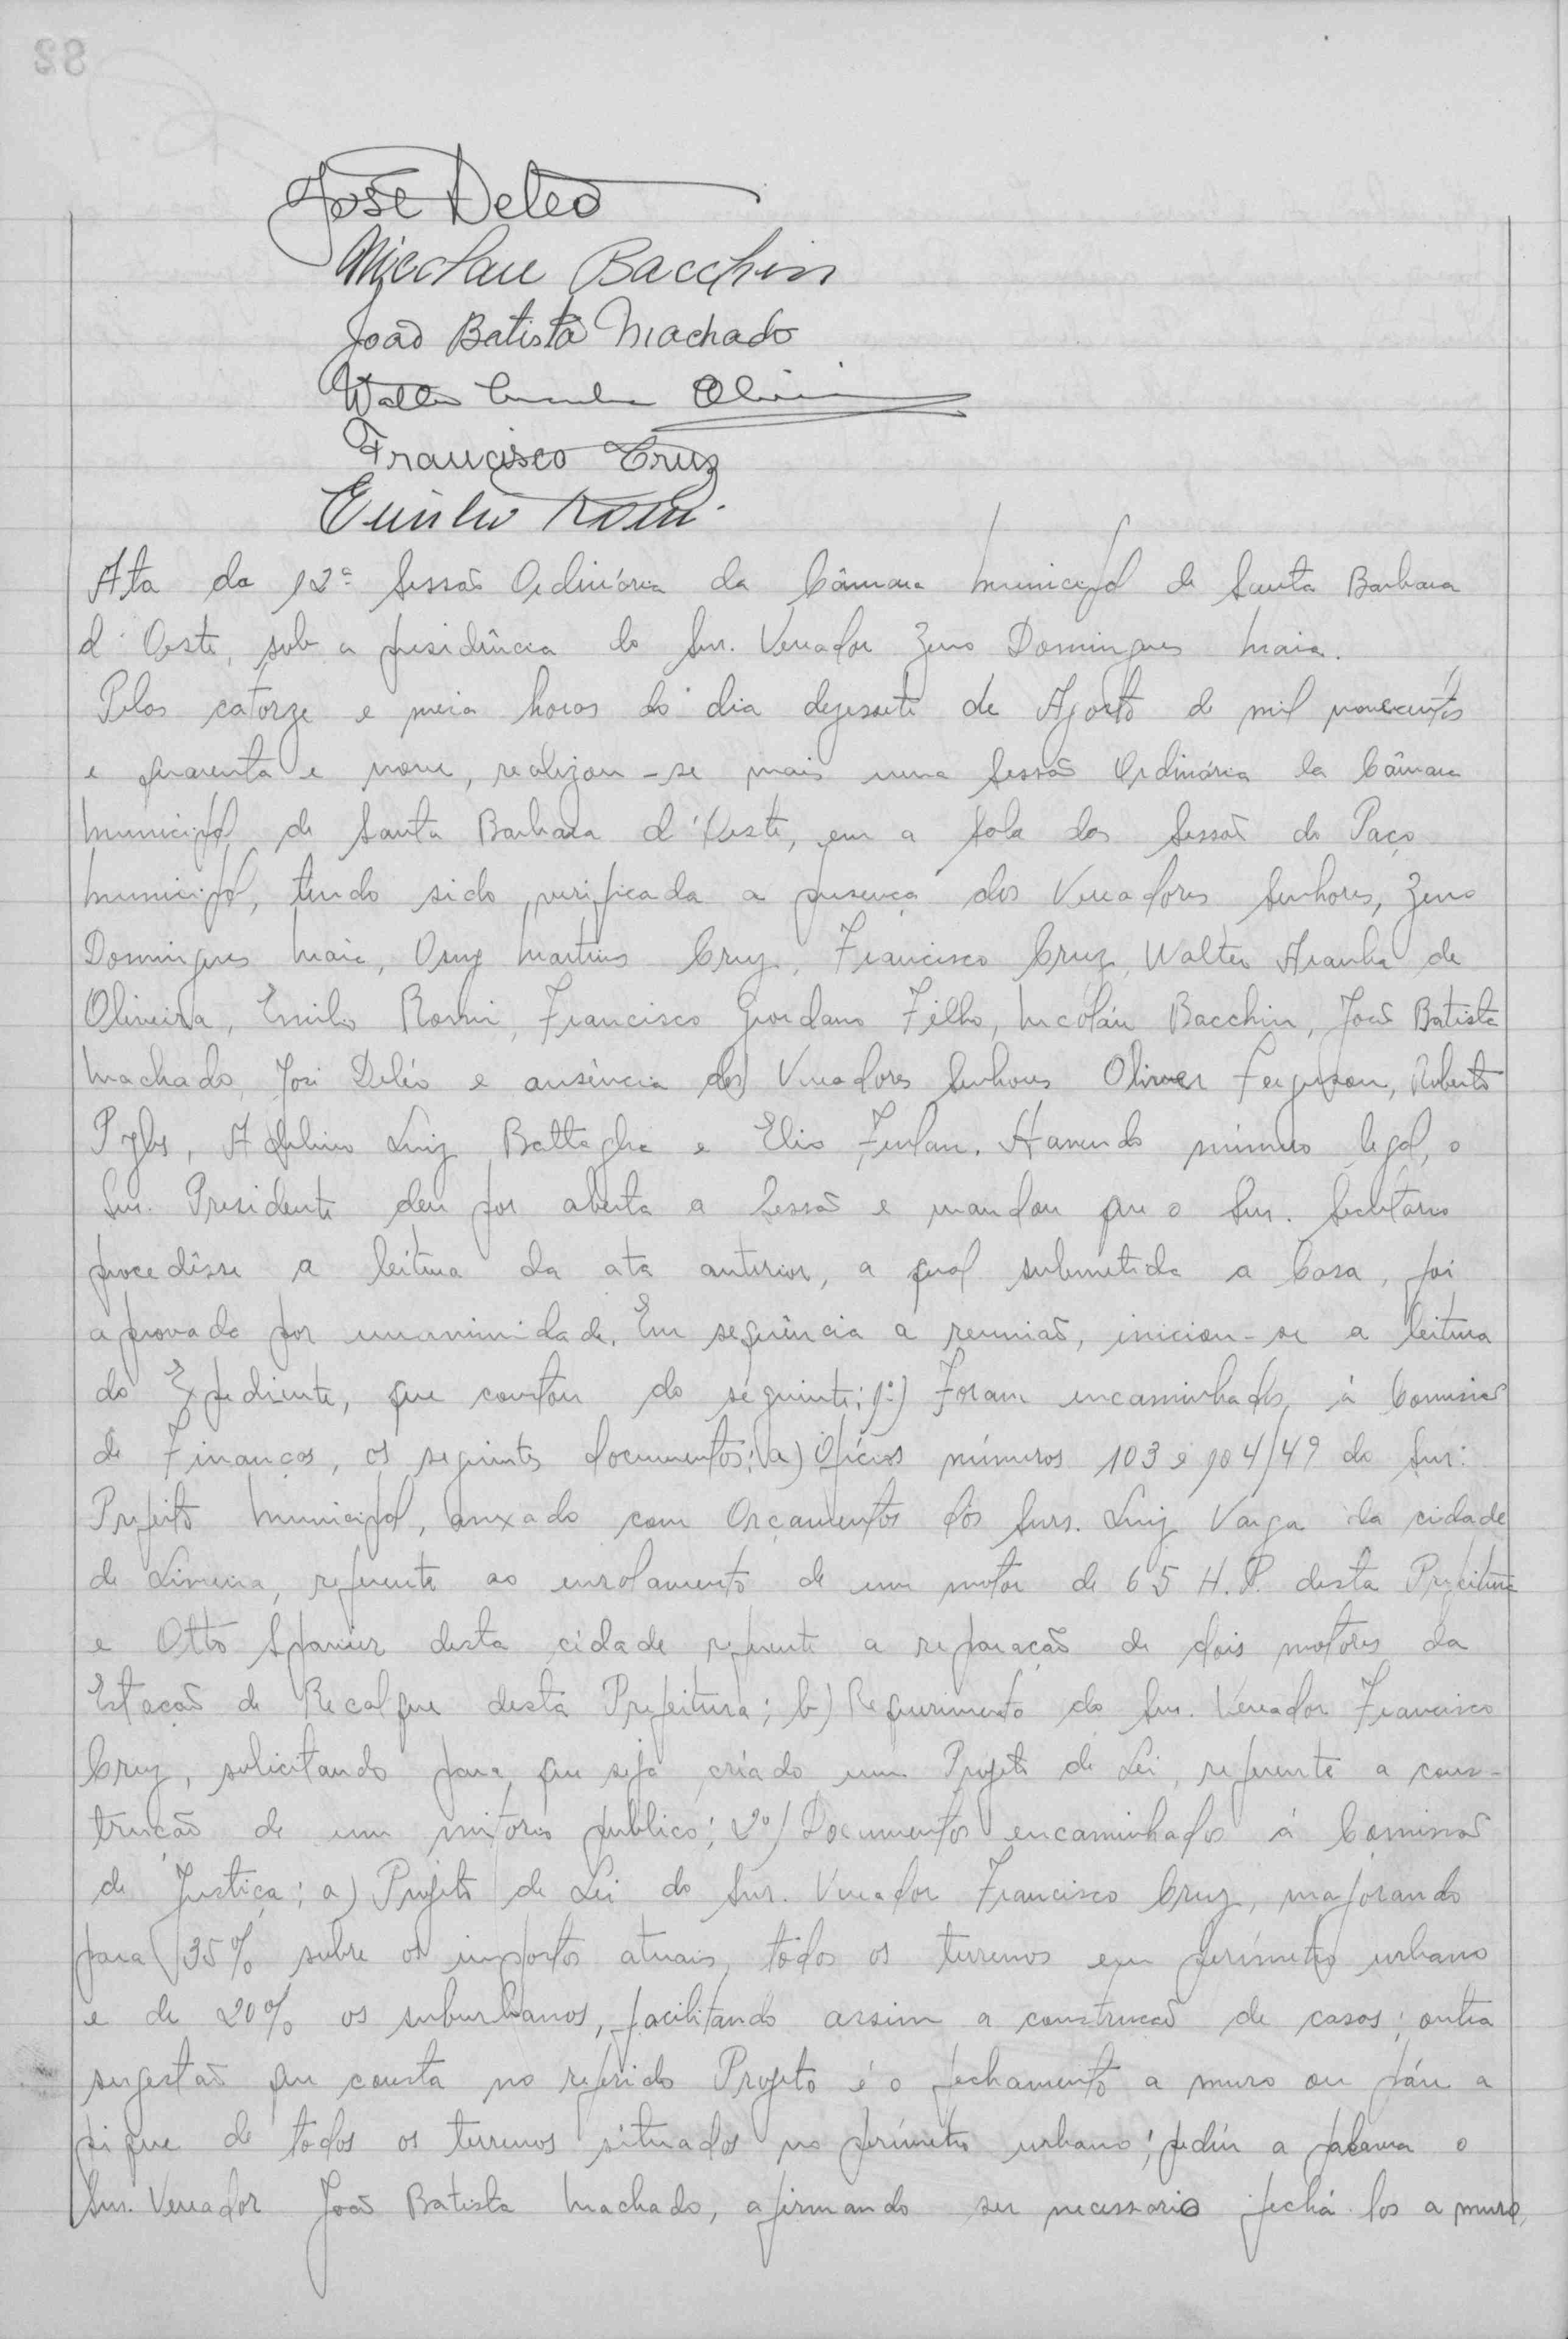 José Deleo
Nicolau Bacchin
João Batista Machado
Walter Oliveira
Francisco Cruz
Emilio Romi
Ata da 12ª Sessão Ordinária da Câmara Municipal de Santa Barbara
d'Oeste, sob a presidência do Snr. Vereador Zeno Domingues Maia.
Pelas catorze e meia horas do dia dezessete de Agosto de mil novecentos
e quarenta e nove, realizou-se mais uma Sessão Ordinária da Câmara
Municipal de Santa Barbara d'Oeste, em a sala das Sessão do Paço
Municipal, tendo sido verificada a presença dos Vereadores Senhores, Zeno
Domingues Maia, Osny Martins Cruz, Francisco Cruz, Walter Aranha de
Oliveira, Emilio Romi, Francisco Giordano Filho, Nicoláu Bacchin, João Batista
Machado, José Deléo e ausência dos Vereadores Senhores Oliver Ferguson, Roberto
Pyles, Adelino Luiz Battaglia e Elio Furlan. Havendo número legal, o
Snr. Presidente deu por aberta a Sessão e mandou que o Snr. Secretario
procedêsse a leitura da ata anterior, a qual submetida a Casa, foi
aprovada por unanimidade. Em sequência a reunião, iniciou-se a leitura
do Expediente, que constou do seguinte: 1º) Foram encaminhados, à Comissão
de Finanças, os seguintes documentos: a) Ofícios números 103 e 104/49 do Snr.
Prefeito Municipal, anexado com Orçamentos dos Snrs. Luiz Varga da cidade
de Limeira, referente ao enrolamento de um motor de 65 H.P. desta Prefeitura
e Otto Spanier desta cidade referente a reparação de dois motores da
Estação de Recalque desta Prefeitura; b) Requerimento do Snr. Vereador Francisco
Cruz, solicitando para que seja criado um Projeto de Lei, referente a cons-
trução de um mitório publico; 2º) Documentos encaminhados à Comissão
de Justiça: a) Projeto de Lei do Snr. Vereador Francisco Cruz, majorando
para 35% sobre os impostos atuais, todos os terrenos em perímetro urbano
e de 20% os suburbanos, facilitando assim a construção de casas; outra
sugestão que consta no referido Projeto é o fechamento a muro ou páu a
pique de todos os terrenos situados no perímetro urbano; pediu a palavra o
Snr. Vereador João Batista Machado, afirmando ser necessario fechá-los a muro,